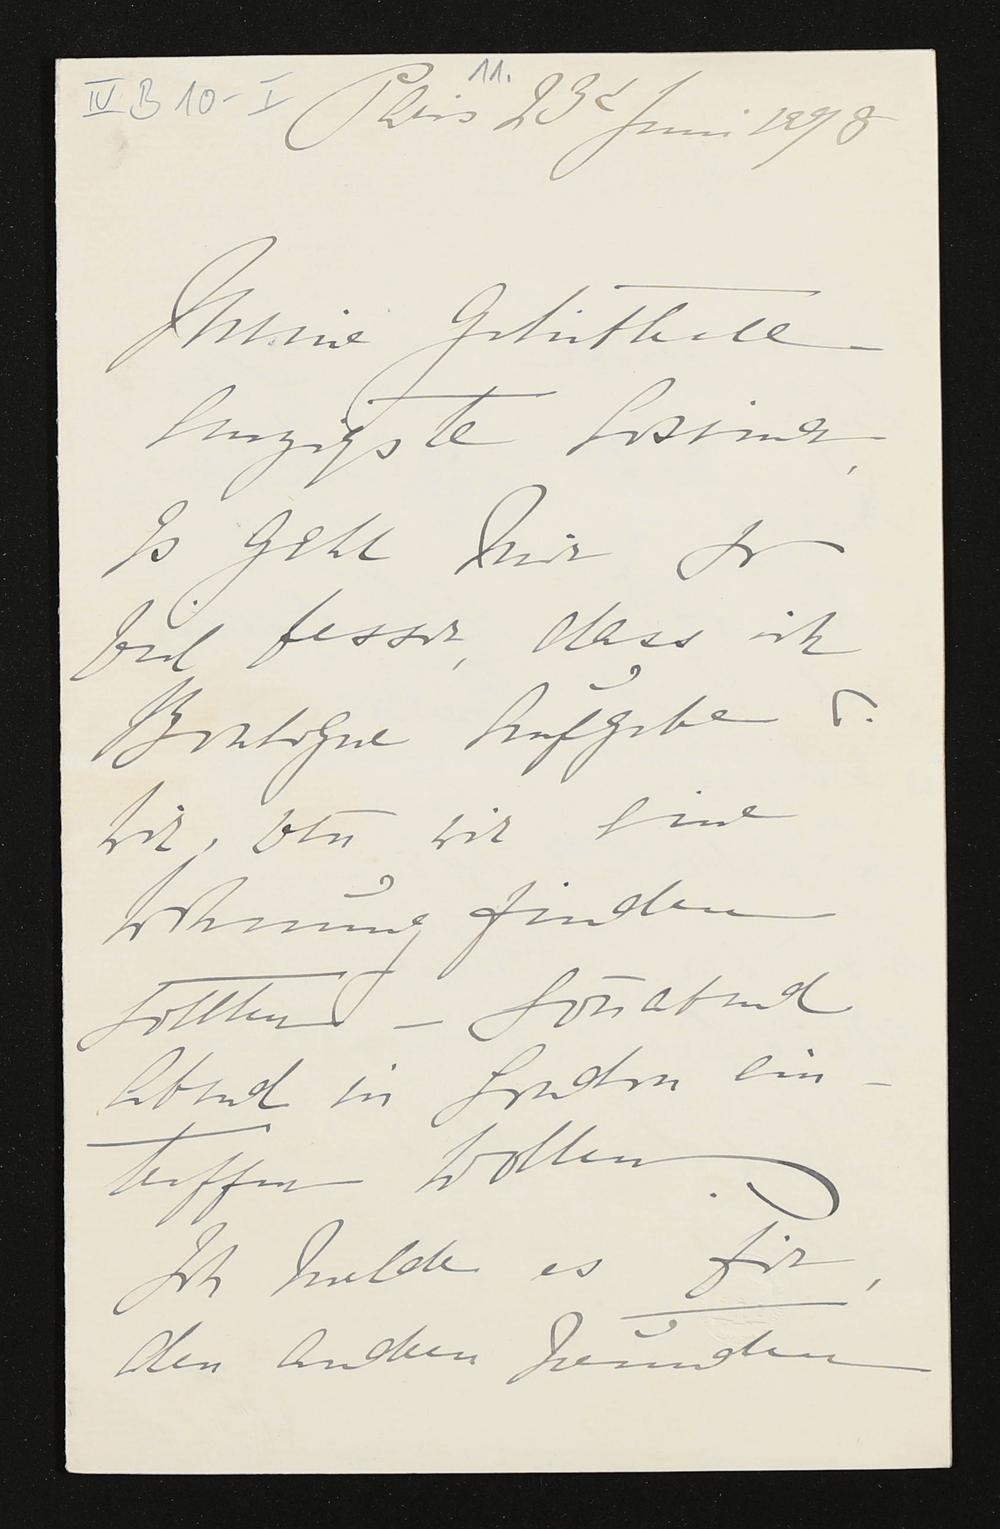 IV B 10 - I
11.
Paris 23t Juni 1898
Meine Geliebteste
einzigste Cosima,
Es geht mir so
viel besser, dass ich
Boulogne aufgebe u.
wir, wenn wir eine
Wohnung finden
sollten – Sonabend
Abend in London ein-
treffen wollen
Ich melde es Dir,
den anderen Freunden